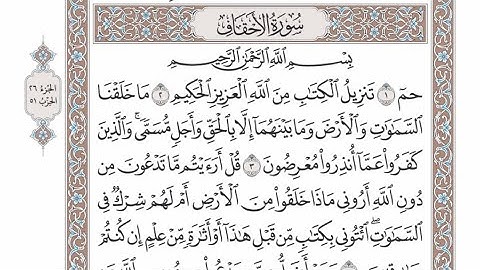 سُورَةُ الأَحْقَافِ
الجُزْءُ ٢٦
الحِزْبُ ٥١
بِسْمِ اللَّهِ الرَّحْمَٰنِ الرَّحِيمِ
حمٓ ١ تَنزِيلُ ٱلْكِتَٰبِ مِنَ ٱللَّهِ ٱلْعَزِيزِ ٱلْحَكِيمِ ٢ مَا خَلَقْنَا
ٱلسَّمَٰوَٰتِ وَٱلْأَرْضَ وَمَا بَيْنَهُمَآ إِلَّا بِٱلْحَقِّ وَأَجَلٍ مُّسَمًّى ۚ وَٱلَّذِينَ
كَفَرُوا۟ عَمَّآ أُنذِرُوا۟ مُعْرِضُونَ ٣ قُلْ أَرَءَيْتُم مَّا تَدْعُونَ مِن
دُونِ ٱللَّهِ أَرُونِى مَاذَا خَلَقُوا۟ مِنَ ٱلْأَرْضِ أَمْ لَهُمْ شِرْكٌ فِى
ٱلسَّمَٰوَٰتِ ۖ ٱئْتُونِى بِكِتَٰبٍ مِّن قَبْلِ هَٰذَآ أَوْ أَثَٰرَةٍ مِّنْ عِلْمٍ إِن كُنتُمْ